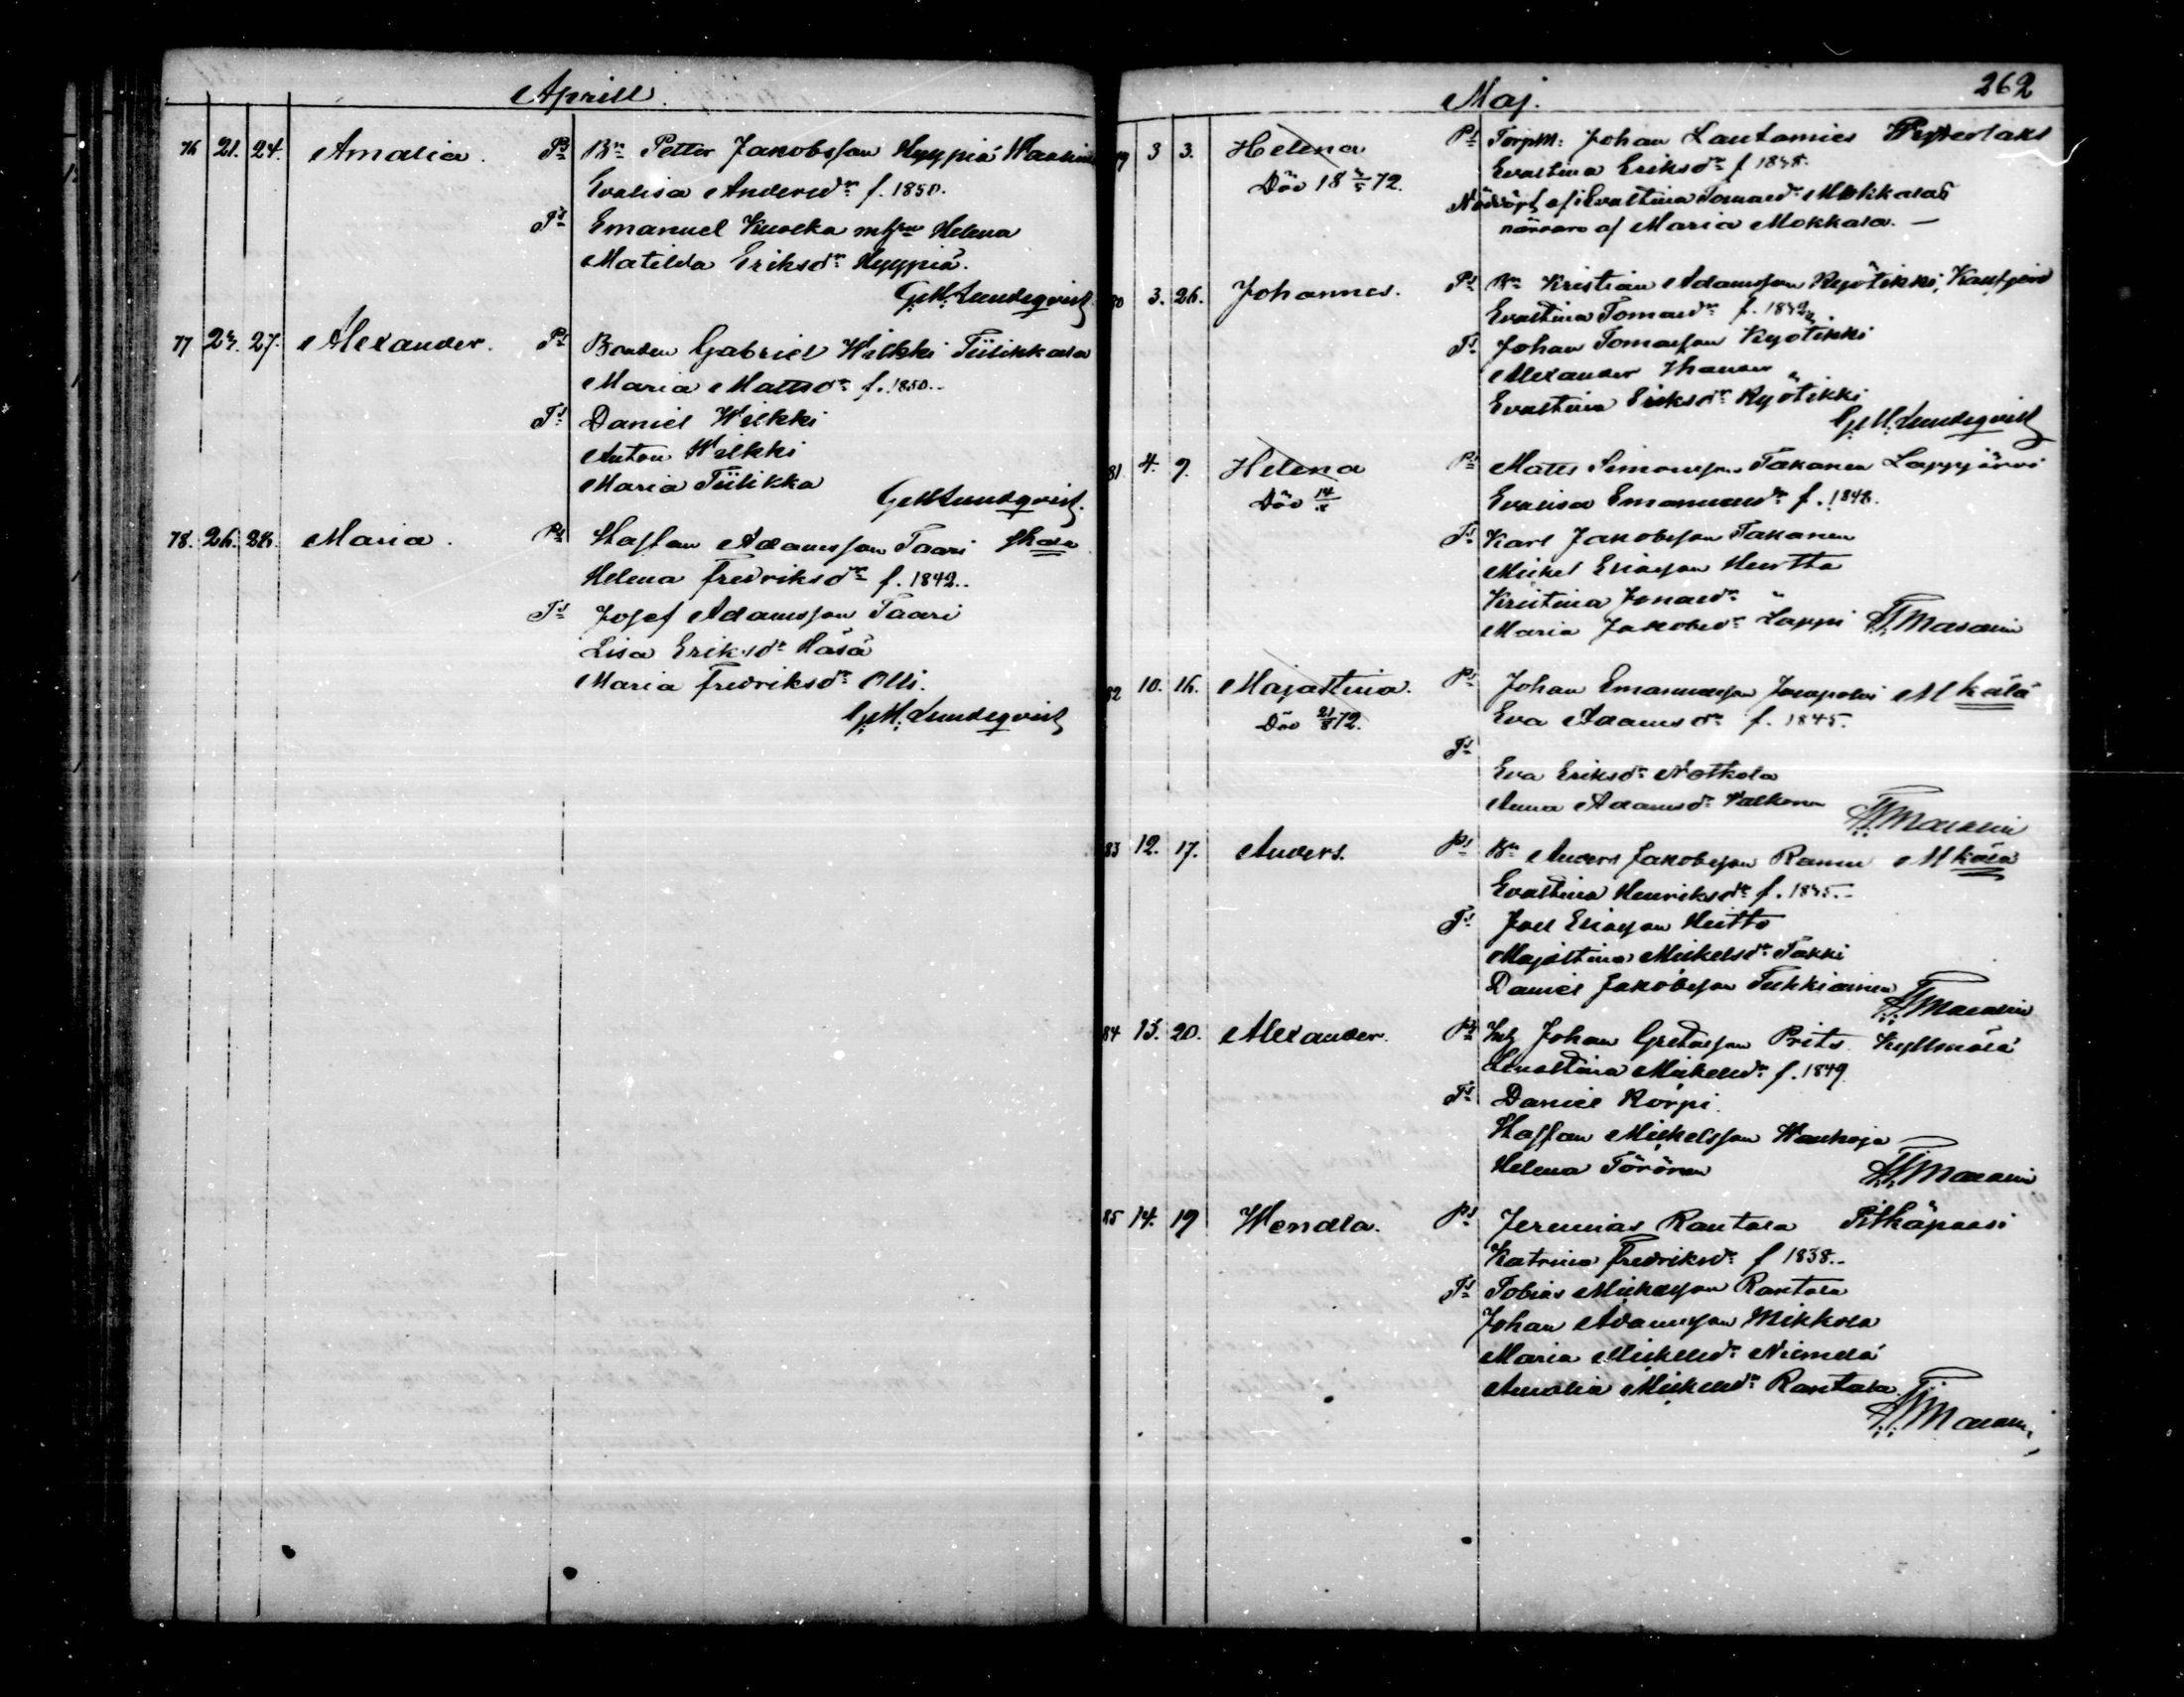 Aprill.
76 21. 24. Amalia. Ps Bn Petter Jakobsson Hyypiä
Evalisa Andersdr f. 1850.
Ts Emanuel Kuolka m hu Helena
Matilda Eriksdr Hyypiä.
G. M. Lundeqvist
77 23. 27. Alexander. Ps Bonden Gabriel Wilkki Tiilikkala
Maria Mattsdr f. 1850.
Ts Daniel Wilkki
Anton Wilkki
Maria Tiilikka
G M Lundeqvist.
78. 26. 28. Maria. Ps Staffan Adamsson Taari
Helena Fredriksdr f. 1842.
Ts Josef Adamsson Taari
Lisa Eriksdr Häsä
Maria Fredriksdr Olli.
G. M. Lundeqvist
262
Maj.
79 3 3. Helena Ps Torpm: Johan Lautamies Pyterlaks
Evastina Eriksdr f 1838.
Död 18 72.
Nöddöpt af Evastina Tomasdr Mokkala
närvaro af Maria Mokkala. —
80 3. 26. Johannes. Ps Bn Kristian Adamsson Kyötikki,
Evastina Tomasdr f.
Ts Johan Tomasson Kyötikki
Alexander Ihander
Evastina Eriksdr Kyötikki
G. M. Lundeqvist
81 4. 9. Helena Ps Matts Simonsson Takanen Lappjärvi
Död 14 Evalisa Emanuelsdr f. 1848.
Ts Karl Jakobsson Takanen
Mickel Eliasson Heertta
Kristina Jonasdr "
Maria Jakobsdr Lappi Masalin
82 10. 16. Majastina. Ps Johan Emanuelsson M kylä
Död 21/8 72. Eva Adamsdr f. 1845.
Ts
Eva Eriksdr Notkola
Anna Adamsdr Valkonen
Masalin
83 12. 17. Anders. Ps Bn Anders Jakobsson Ramu M kylä
Evastina Henriksdr f. 1845.
Ts Joel Eliasson Heitto
Majastina Mickelsdr Takki
Daniel Jakobsson Tuhkiainen
Masalin
84 13. 20. Alexander. Ps Inh Johan Gustafsson Prits
Lenastina Mickelsdr f. 1849.
Ts Daniel Korpi.
Staffan Mickelsson Wanhoja
Helena Törönen
Masalin
85 14. 19 Wendla. Ps Jeremias Rantala Pitkäpaasi
Katrina Fredriksdr f 1838.
Ts Tobias Mickelsson Rantala
Johan Adamsson Mikkola
Maria Mickelsdr Niemelä
Amalia Mickelsdr Rantala.
Masalin